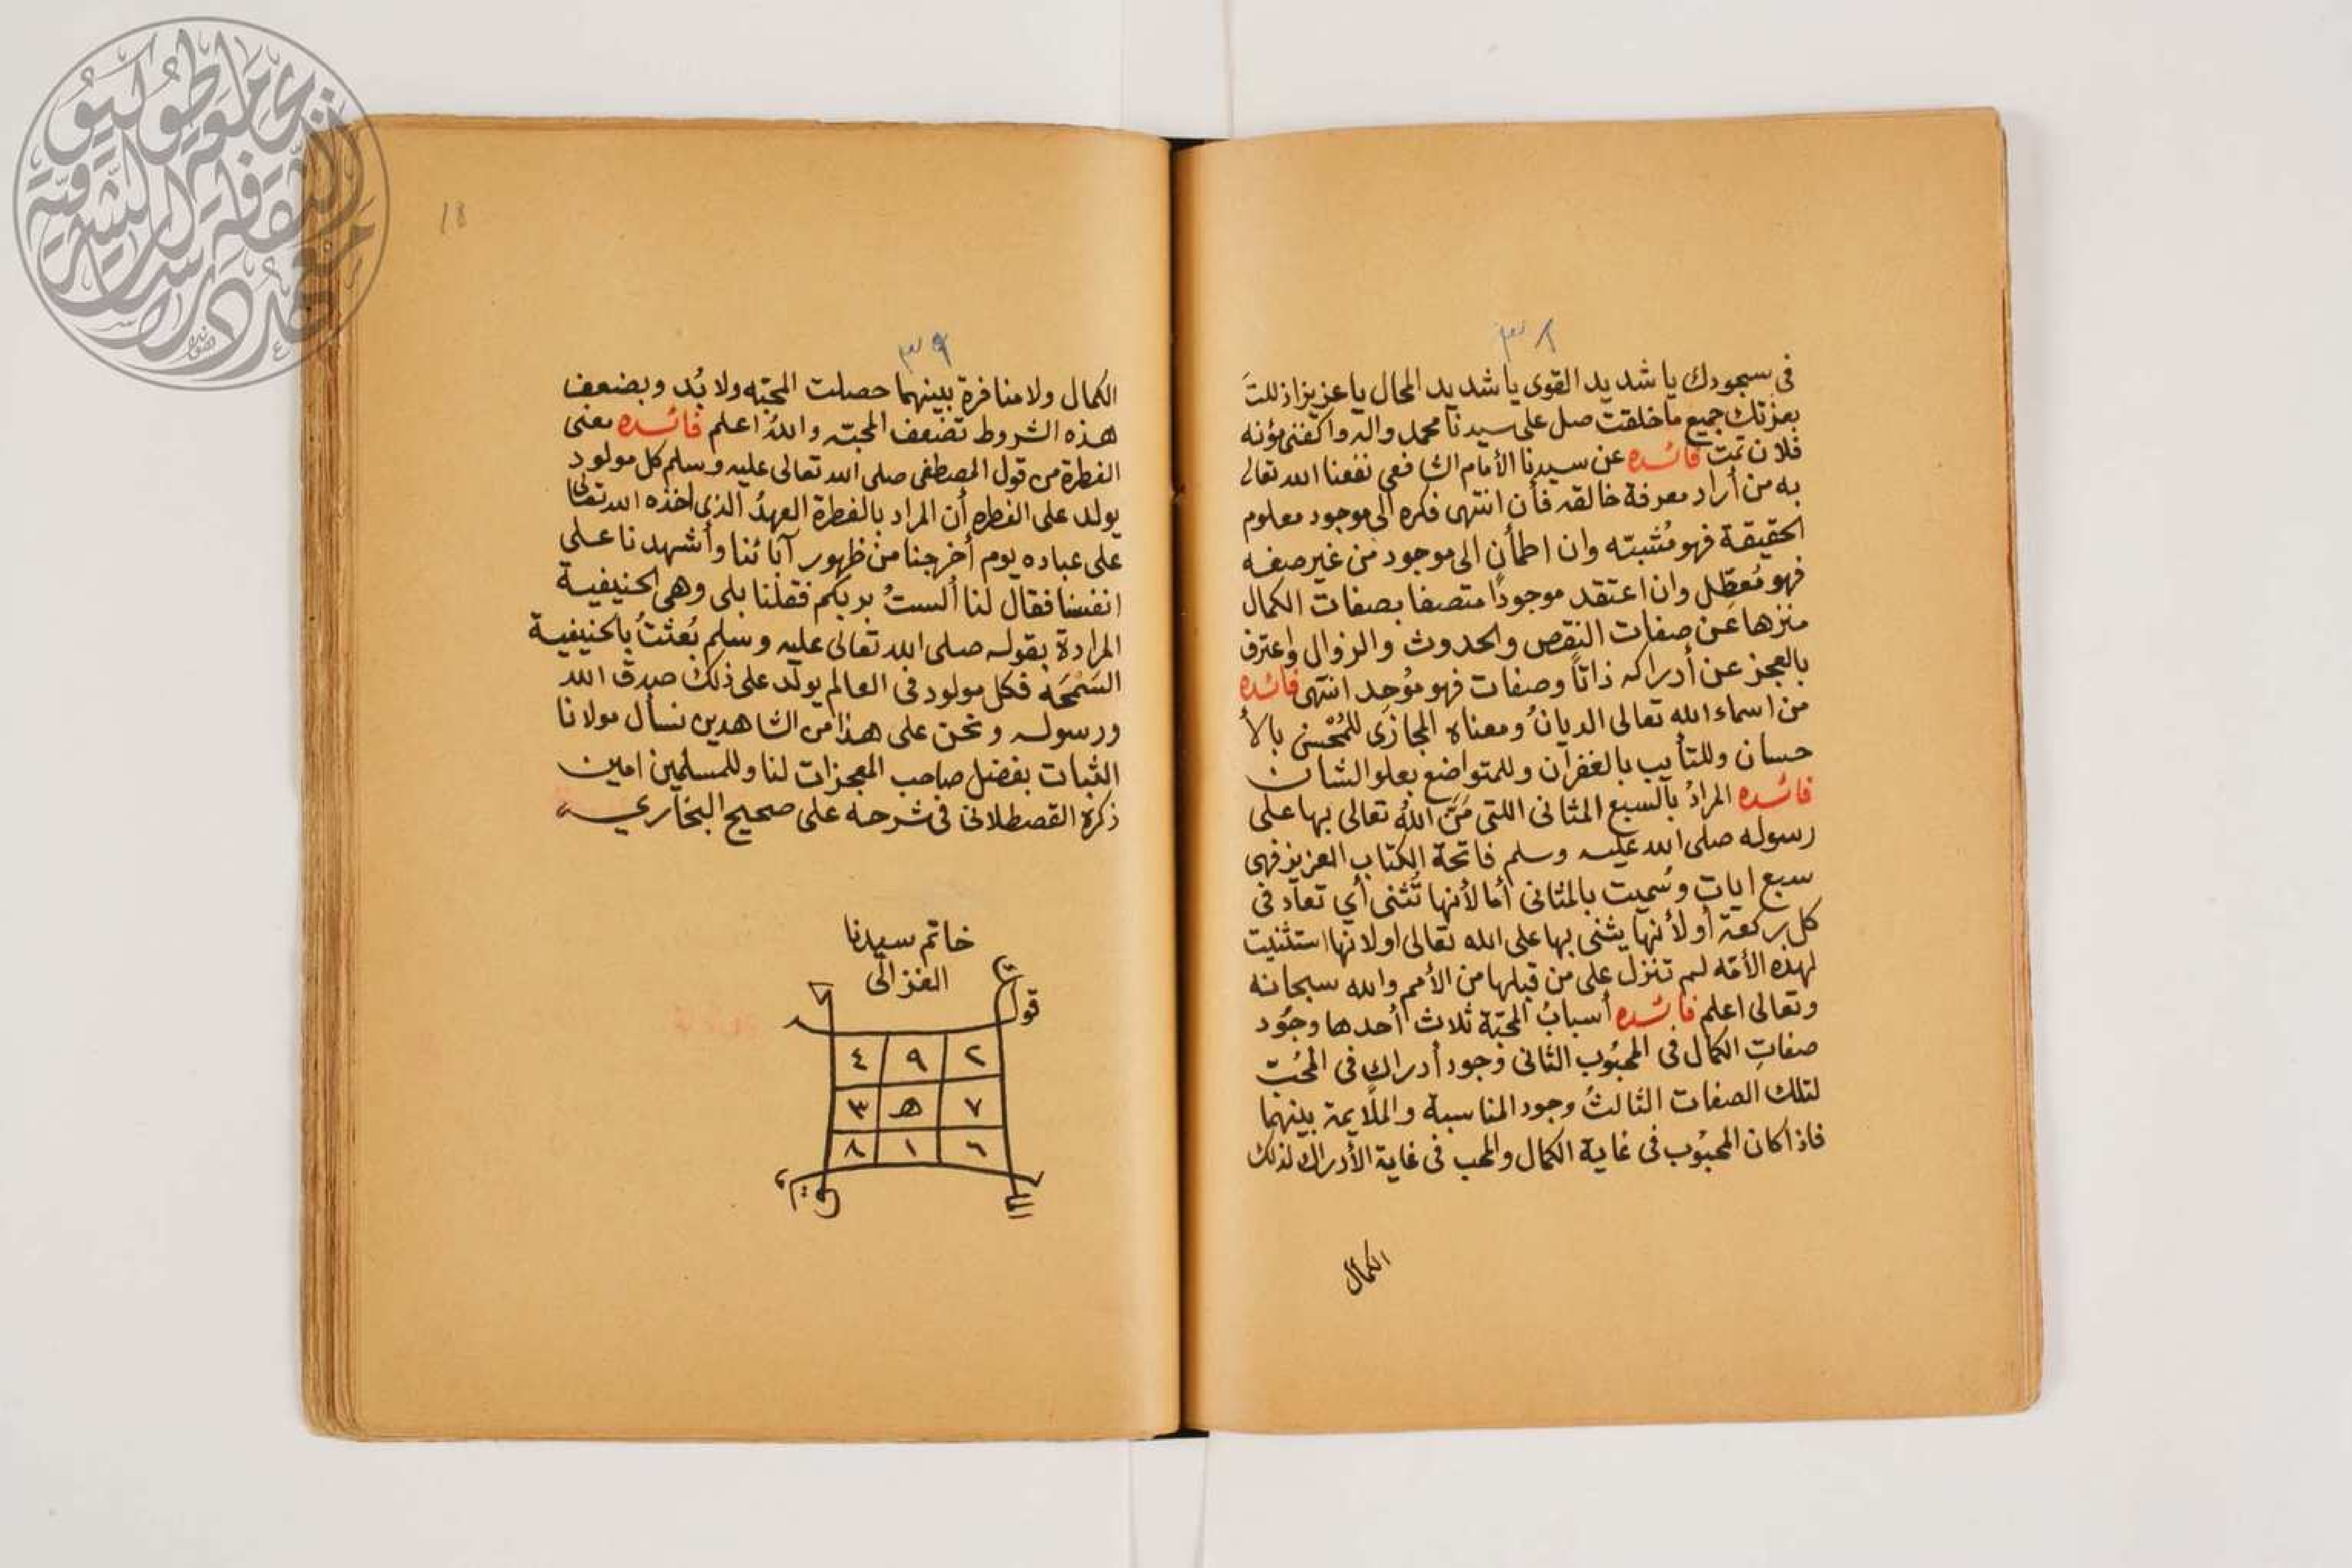 ٣٨
في سجودك يا شديد القوى يا شديد المحال يا عزيز اذللتَ
بعزتك جميع ما خلقت صل على سيدنا محمد واله واكفنى مؤنه
فلان تمت فائده عن سيدنا الأمام الشافعي نفعنا الله تعالى
به من أراد معرفة خالقه فأن انتهى فكره الى موجود معلوم
الحقيقة فهو مُشبته وان اطمأن الى موجود من غير صفه
فهو مُعطِّل وان اعتقد موجودًا متصفا بصفات الكمال
منزها عن صفات النقص والحدوث والزوال واعترف
بالعجز عن أدراكه ذاتاً وصفات فهو مؤحد انتهى فائده
من اسماء الله تعالى الديانُ ومعناه المجازى للمُحْسن بالأ
حسان وللتأيب بالغفران وللمتواضع بعلو الشان
فائده المرادُ بالسبع المثانى اللتى مَنَّ اللهُ تعالى بها على
رسوله صلى الله عليه وسلم فاتحة الكتاب العزيز فهى
سبع ايات وسُميت بالمثانى أما لأنها تُثنى أي تعاد في
كل ركعة أو لأنها يثنى بها على الله تعالى او لانها استثنيت
لهذه الأمّه لم تنزل على من قبلها من الأمم والله سبحانه
وتعالى اعلم فائده أسبابُ المحبّة ثلاث أحدها وجُود
صفاتِ الكمال في المحبُوب الثانى وجود أدراك في المُحِبّ
لتلك الصفات الثالثُ وجود المناسبة والملايمة بينهما
فاذا كان المحبُوب في غاية الكمال والمحب في غاية الأدراك لذلك
الكمال
18
٣٩
الكمال ولا منافرة بينهما حصلت المحبّه ولا بُد وبضعف
هذه الشروط تضعف المحبّه واللهُ اعلم فائده معنى
الفطرة من قول المصطفى صلى الله تعالى عليه وسلم كل مولود
يولد على الفطره أن المراد بالفطرة العهدُ الذى اخذه الله تعالى
على عباده يوم أخرجنا من ظهور آبائنا وأشهدنا على
انفسنا فقال لنا ألستُ بربكم فقلنا بلى وهى الحنيفية
المرادة بقوله صلى الله تعالى عليه وسلم بُعثتُ بالحنيفية
السَمْحَه فكل مولود في العالم يولد على ذلك صدق الله
ورسوله ونحن على هذا من الشاهدين نسأل مولانا
الثبات بفضل صاحب المعجزات لنا وللمسلمين امين
ذكره القصطلانى فى شرحه على صحيح البخاري
خاتم سيدنا
الغزالى
قوله
٢ ٩ ٤
٧ ھ ٣
٦ ١ ٨